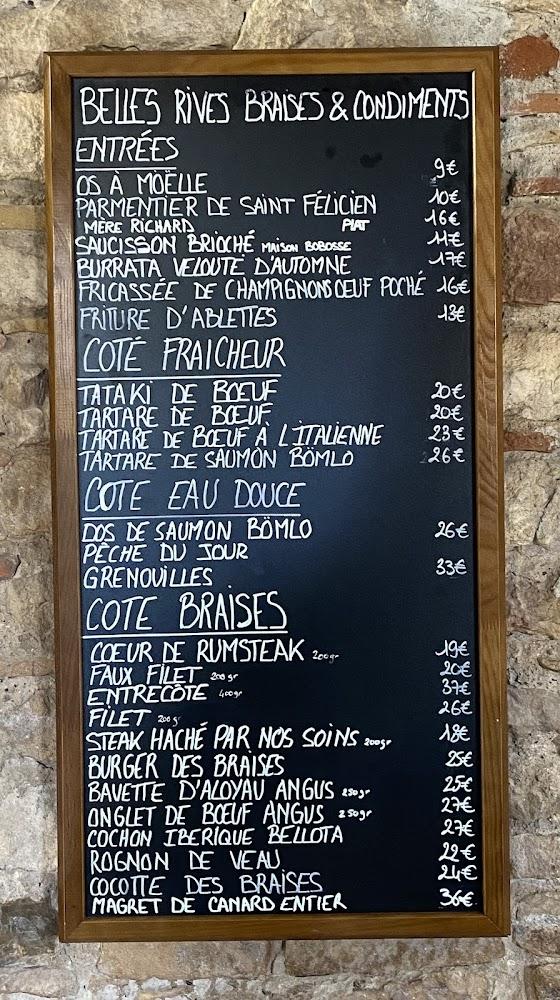 BELLES RIVES BRAISES & CONDIMENTS
ENTRÉES
OS À MÖELLE 9€
PARMENTIER DE SAINT FÉLICIEN 10€
MÈRE RICHARD PLAT 16€
SAUCISSON BRIOCHÉ MAISON BOBOSSE 11€
BURRATA VELOUTÉ D'AUTOMNE 17€
FRICASSÉE DE CHAMPIGNONS OEUF POCHÉ 16€
FRITURE D'ABLETTES 13€
COTÉ FRAICHEUR
TATAKI DE BŒUF 20€
TARTARE DE BŒUF 20€
TARTARE DE BŒUF À L'ITALIENNE 23€
TARTARE DE SAUMON BÖMLO 26€
COTE EAU DOUCE
DOS DE SAUMON BÖMLO 26€
PÊCHE DU JOUR
GRENOUILLES 33€
COTE BRAISES
COEUR DE RUMSTEAK 200gr 19€
FAUX FILET 200gr 20€
ENTRECÔTE 400gr 37€
FILET 200g 26€
STEAK HACHÉ PAR NOS SOINS 200gr 18€
BURGER DES BRAISES 25€
BAVETTE D'ALOYAU ANGUS 250gr 25€
ONGLET DE BŒUF ANGUS 250gr 27€
COCHON IBERIQUE BELLOTA 27€
ROGNON DE VEAU 22€
COCOTTE DES BRAISES 24€
MAGRET DE CANARD ENTIER 36€